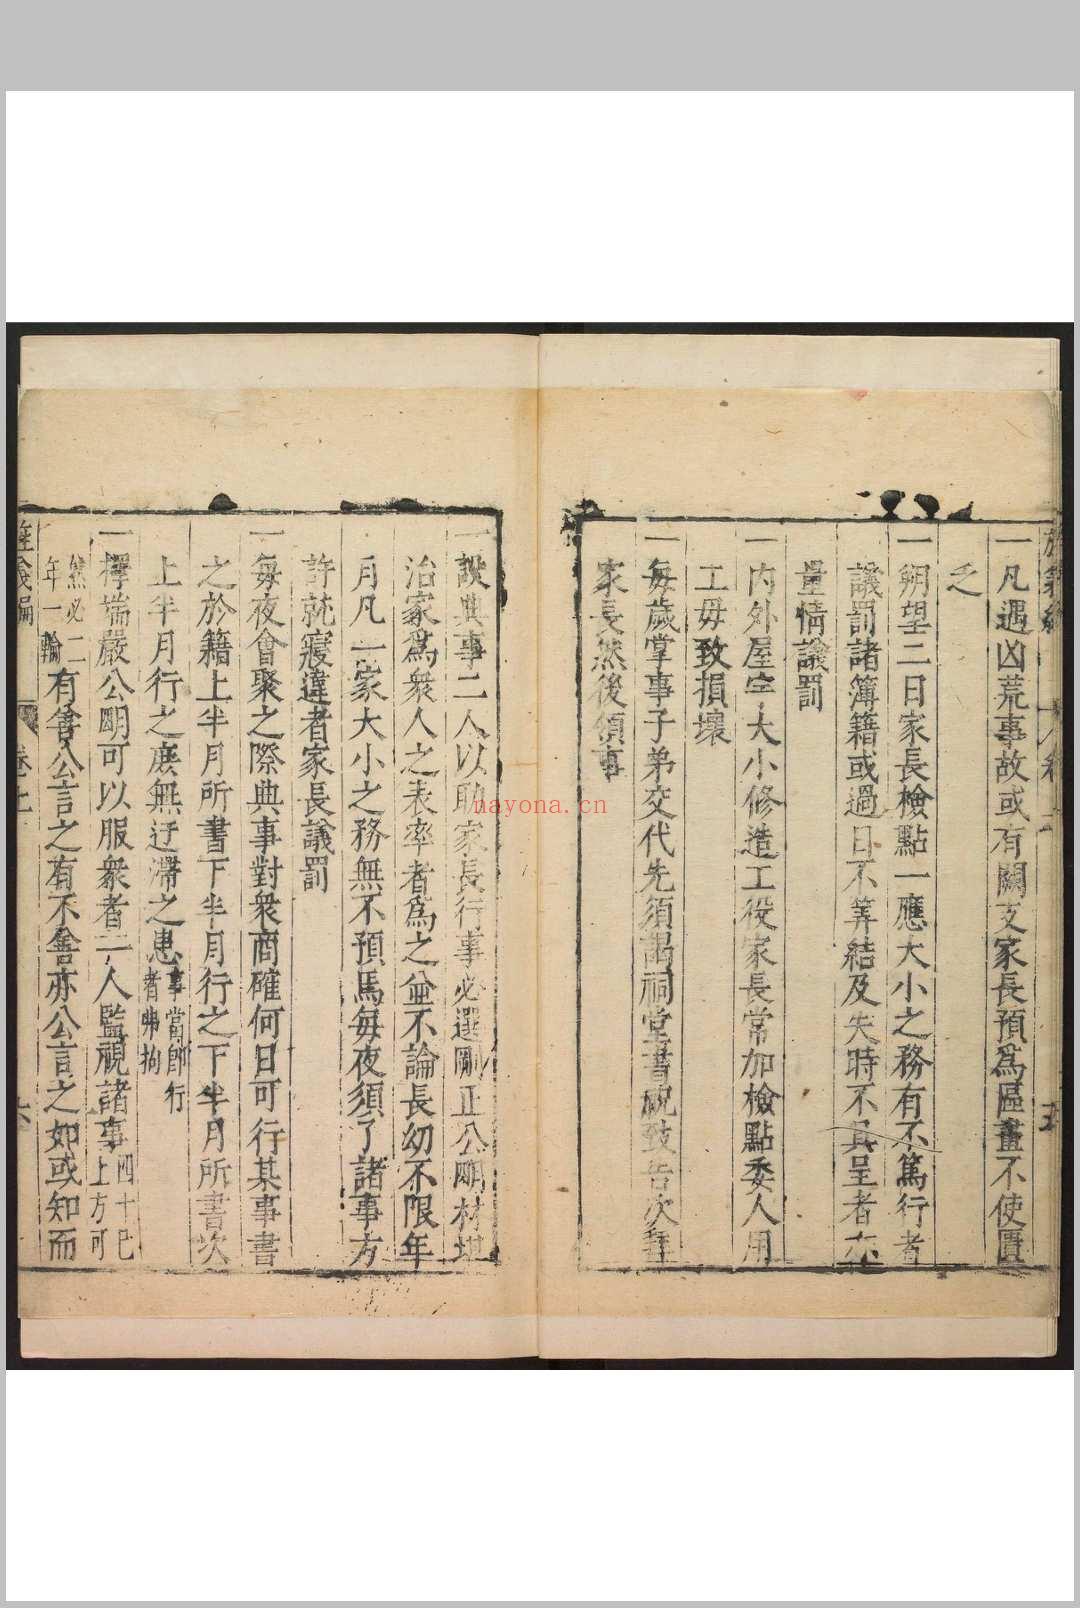 一凡遇凶荒事故或有闕支家長預爲區畫不使匱
乏
一朔望二日家長檢點一應大小之務有不篤行者
議罰諸簿籍或過日不筭結及失時不具呈者亦
量情議罰
一內外屋宇大小修造工役家長常加檢點委人用
工毋致損壞
一每歲掌事子弟交代先須謁祠堂書祝致告次拜
家長然後領事
一設典事二人以助家長行事必選剛正公明材堪
治家爲衆人之表率者爲之並不論長幼不限年
月凡一家大小之務無不預焉每夜須了諸事方
許就寢違者家長議罰
一每夜會聚之際典事對衆商確何日可行某事書
之於籍上半月所書下半月行之下半月所書次
上半月行之庶無迂滯之患事當即行者弗拘
一擇端嚴公明可以服衆者二人監視諸事四十已上方可
然必二年一輪有善公言之有不善亦公言之如或知而
旌義編
卷上
六
nayona.cn